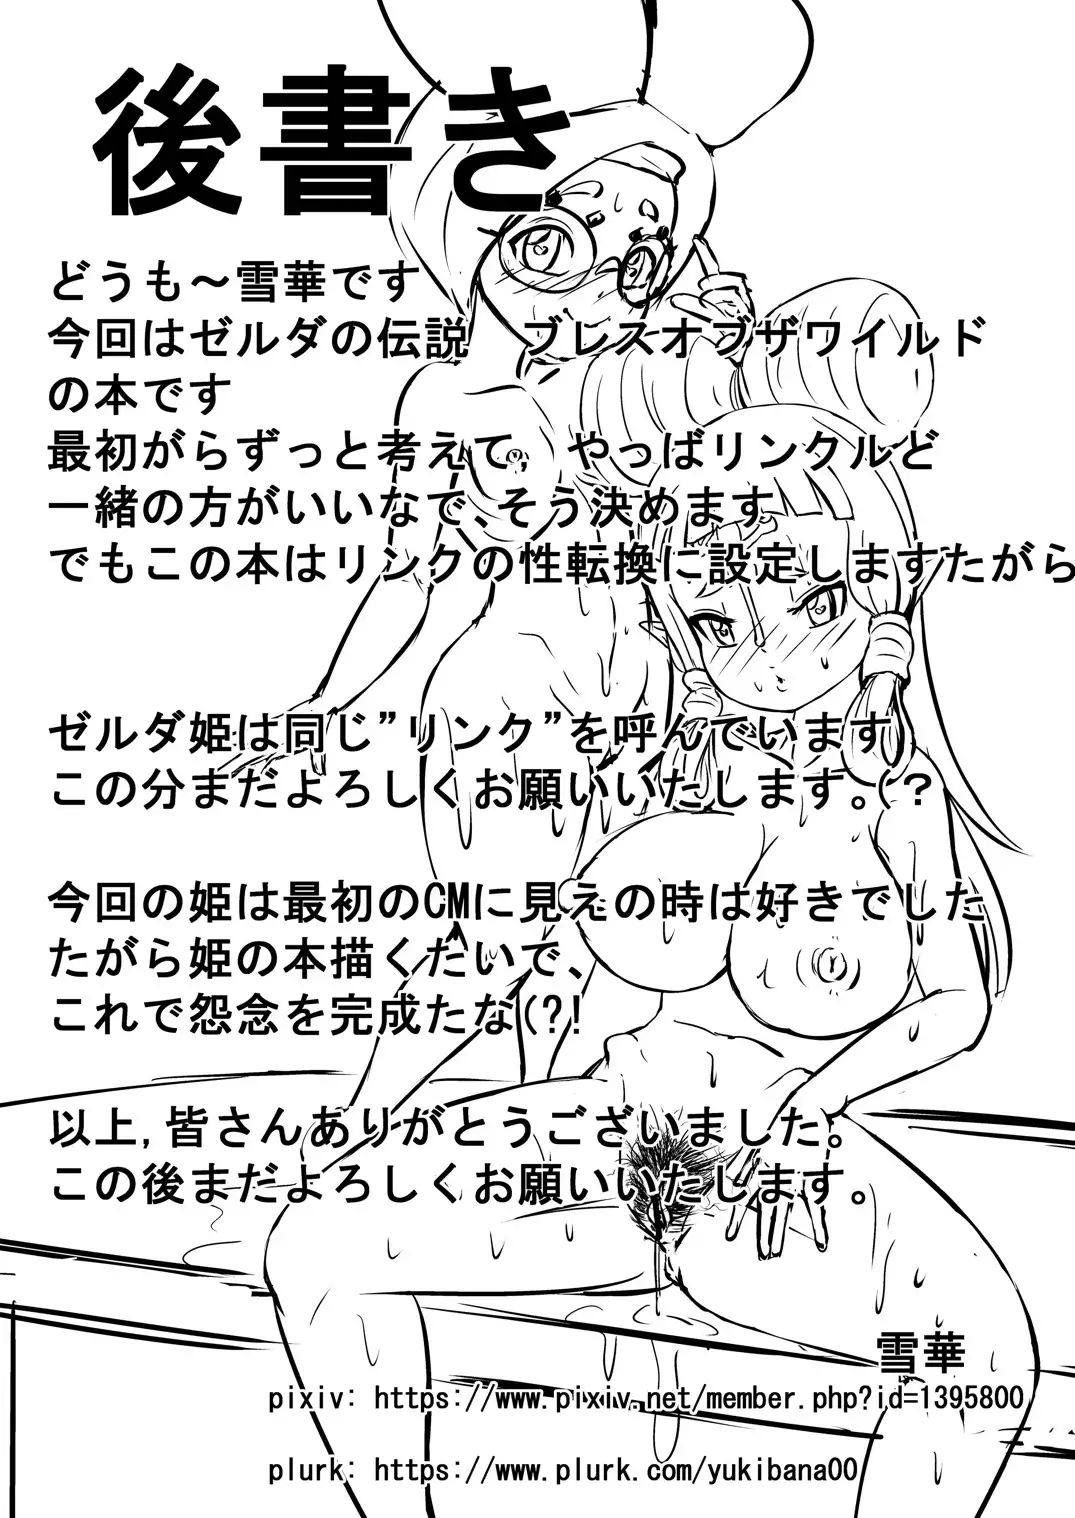 後書き
どうも～雪華です
今回はゼルダの伝説　ブレスオブザワイルド
の本です
最初がらずっと考えて,　やっばリンクルど
一緒の方がいいなで､そう決めます
でもこの本はリンクの性転換に設定しますたがら
ゼルダ姫は同じ”リンク”を呼んでいます
この分まだよろしくお願いいたします。(？
今回の姫は最初のCMに見えの時は好きでした
たがら姫の本描くたいで､
これで怨念を完成たな(?!
以上,皆さんありがとうございました。
この後まだよろしくお願いいたします。
雪華
pixiv: https://www.pixiv.net/member.php?id=1395800
plurk: https://www.plurk.com/yukibana00